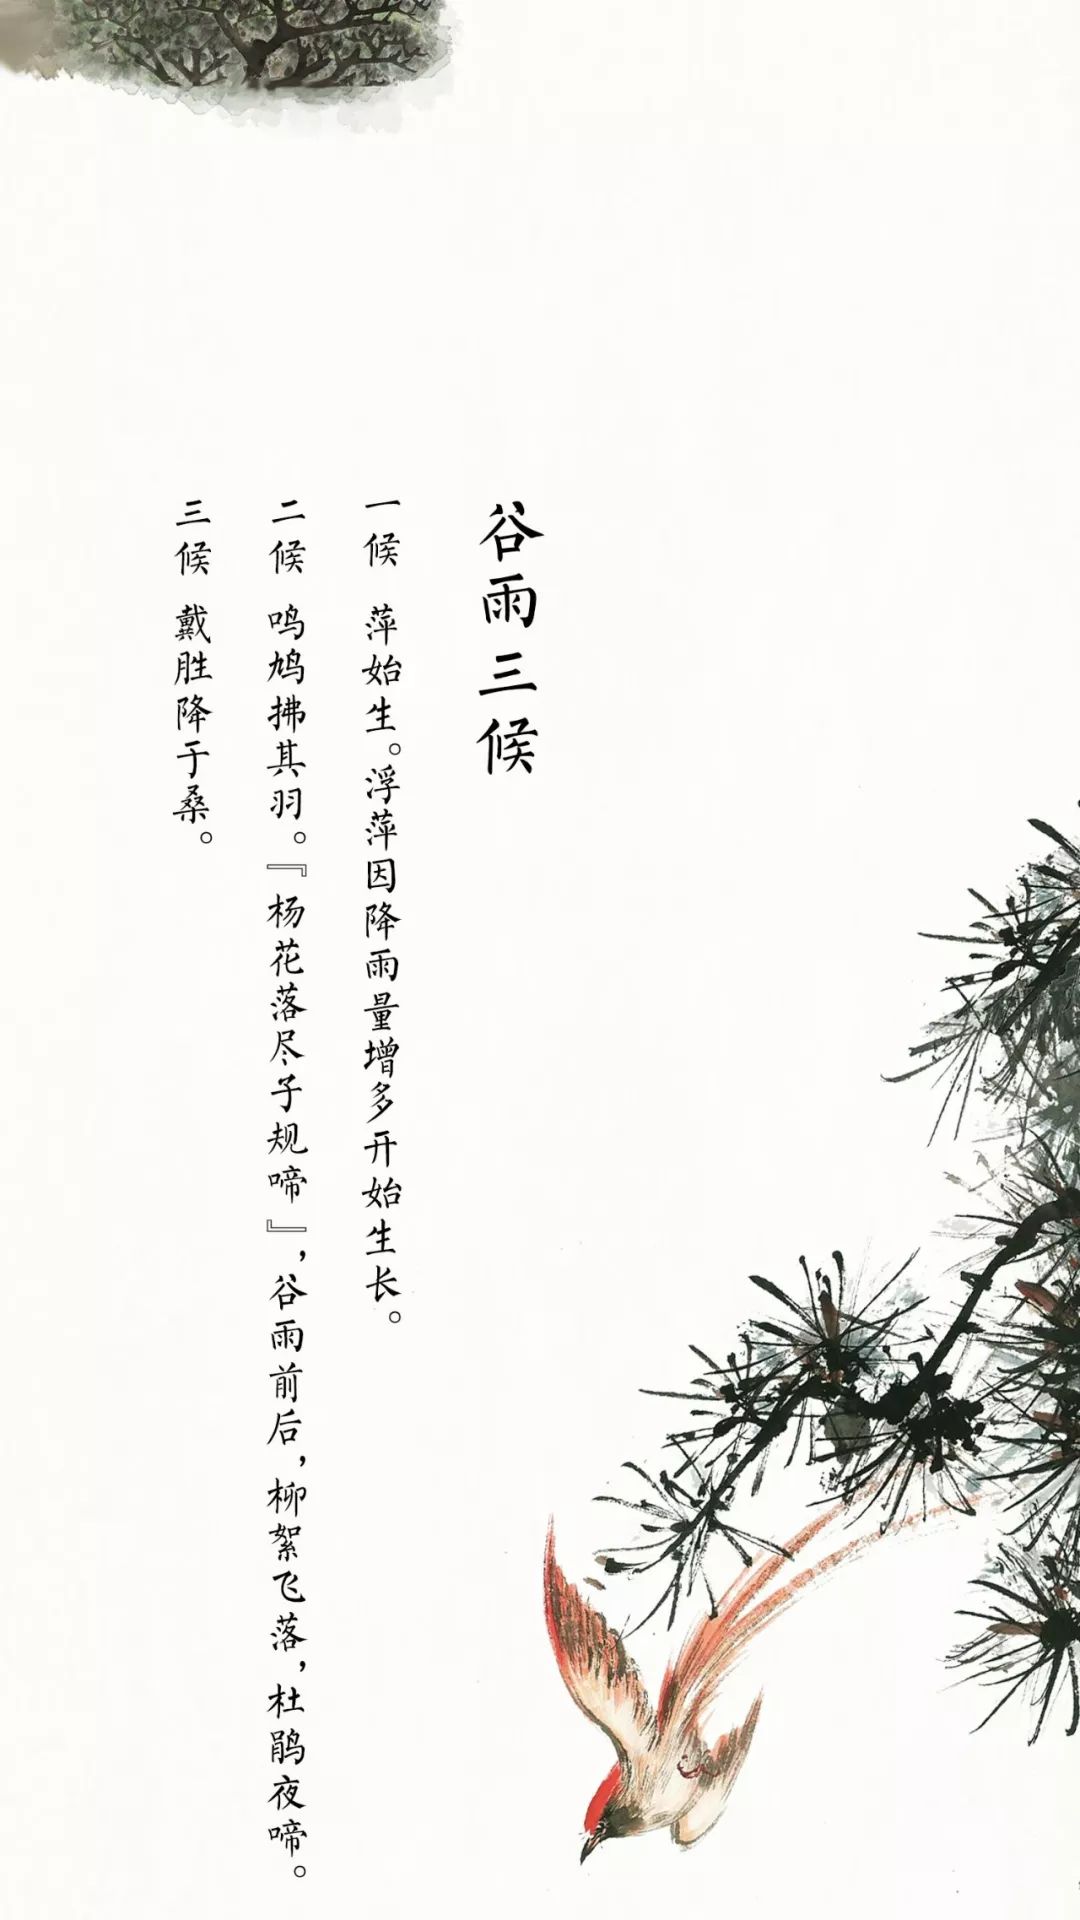 谷雨三候
一候 萍始生。浮萍因降雨量增多开始生长。
二候 鸣鸠拂其羽。『杨花落尽子规啼』，谷雨前后，柳絮飞落，杜鹃夜啼。
三候 戴胜降于桑。